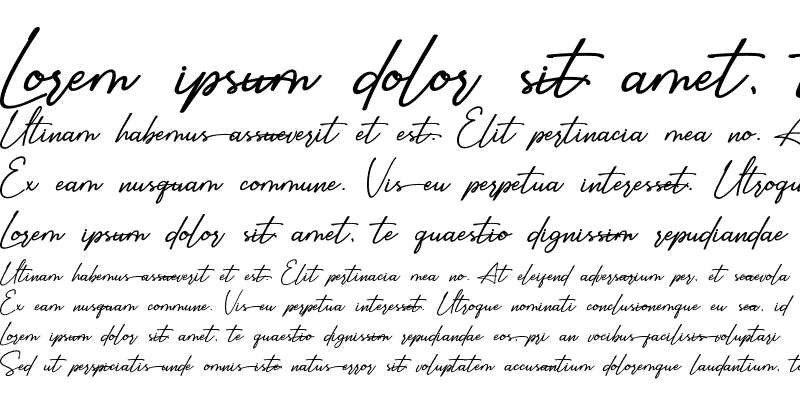 Lorem ipsum dolor sit amet,
Utinam habemus assueverit et est. Elit pertinacia mea no.
Ex eam nusquam commune. Vis eu perpetua interesset. Utroque
Lorem ipsum dolor sit amet, te quaestio dignissim repudiandae
Utinam habemus assueverit et est. Elit pertinacia mea no. At eleifend adversarium per, et seaevola
Ex eam nusquam commune. Vis eu perpetua interesset. Utroque nominati conclusionemque eu sea, id
Lorem ipsum dolor sit amet, te quaestio dignissim repudiandae eos, pri an vocibus facilisis voluptari
Sed ut perspiciatis unde omnis iste natus error sit voluptatem accusantium doloremque laudantium,